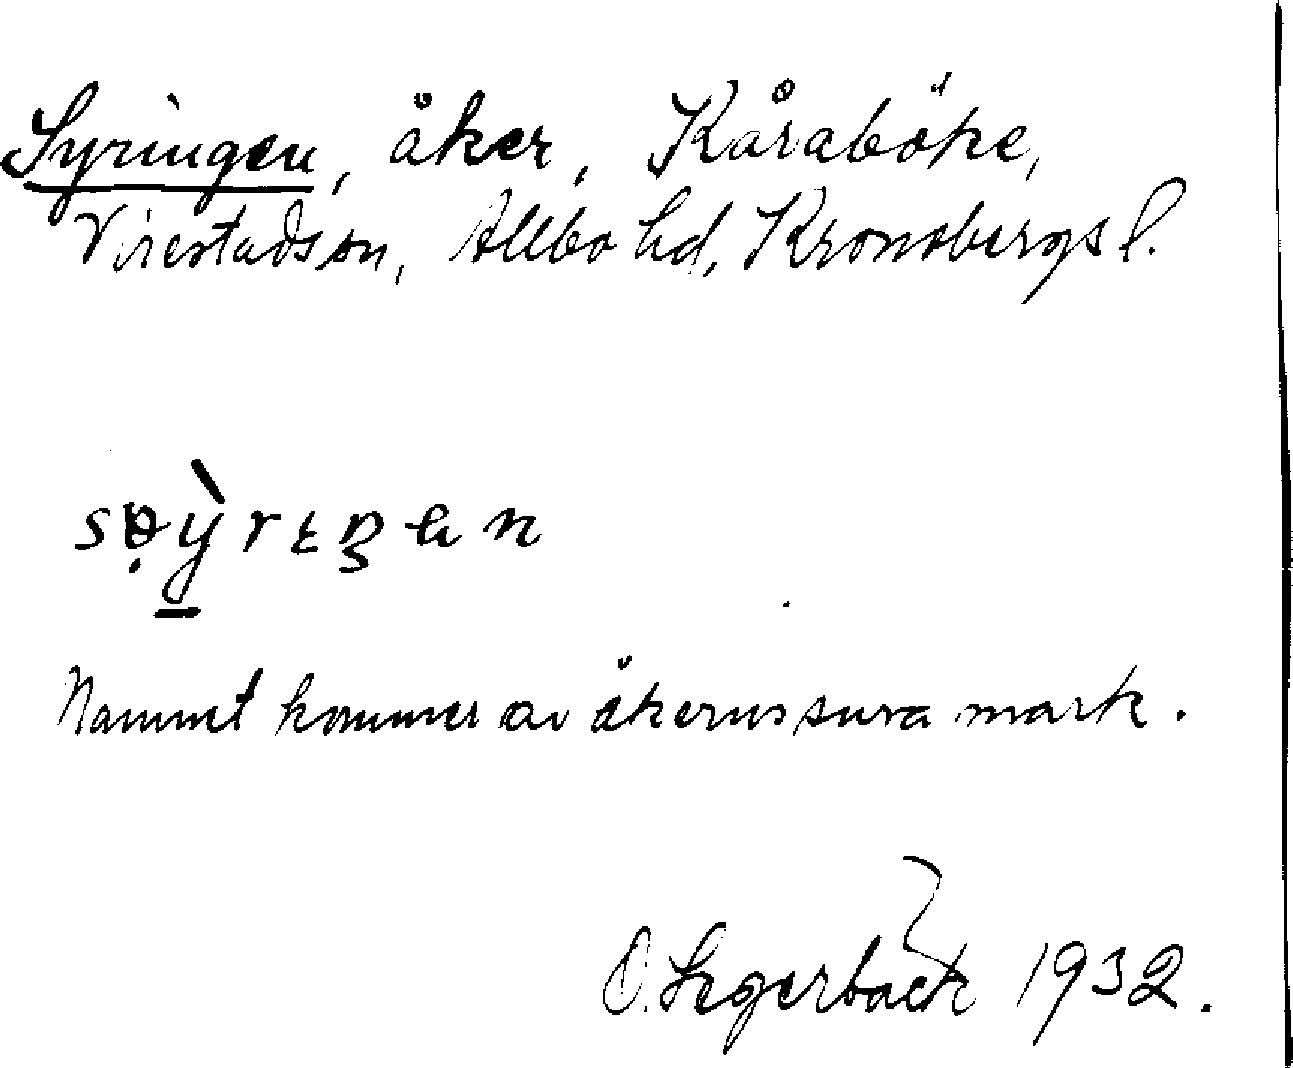 Syringen, åker, Kåraböke,
Virestads sn, Allbo hd, Kronobergs l.
Namnet kommer av åkerns sura mark.
O. Segerbäck 1932.